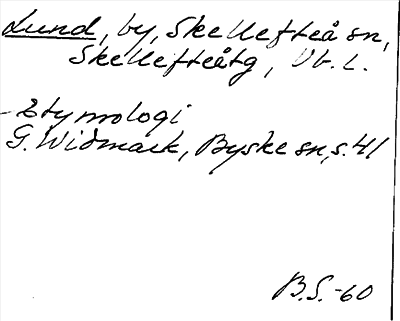 Lund, by, Skellefteå sn,
Skellefteåtg, Vb. l.
- Etymologi
G. Widmark, Byske sn, s. 41
B.S. -60